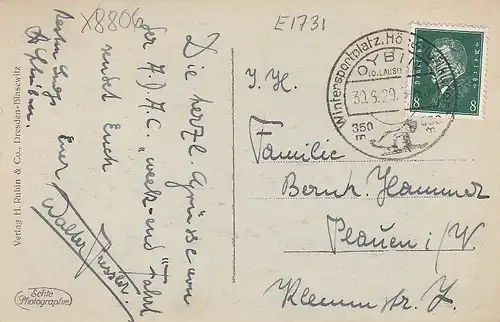 X8806
E1731
Die herzl. Grüsse von
der A.D.A.C. „week-end" Fahrt
sendet Euch
Euer
Walter
Besten Gruß
Verlag H. Rubin & Co., Dresden-Blasewitz
Echte
Photographie
Wintersportplatz, Hö
OYBIN
(O, LAUSI
30.6.29.
350
8 8
I. H.
Familie
Bernh. Hammer
Plauen i/V.
Klemmstr. 7.